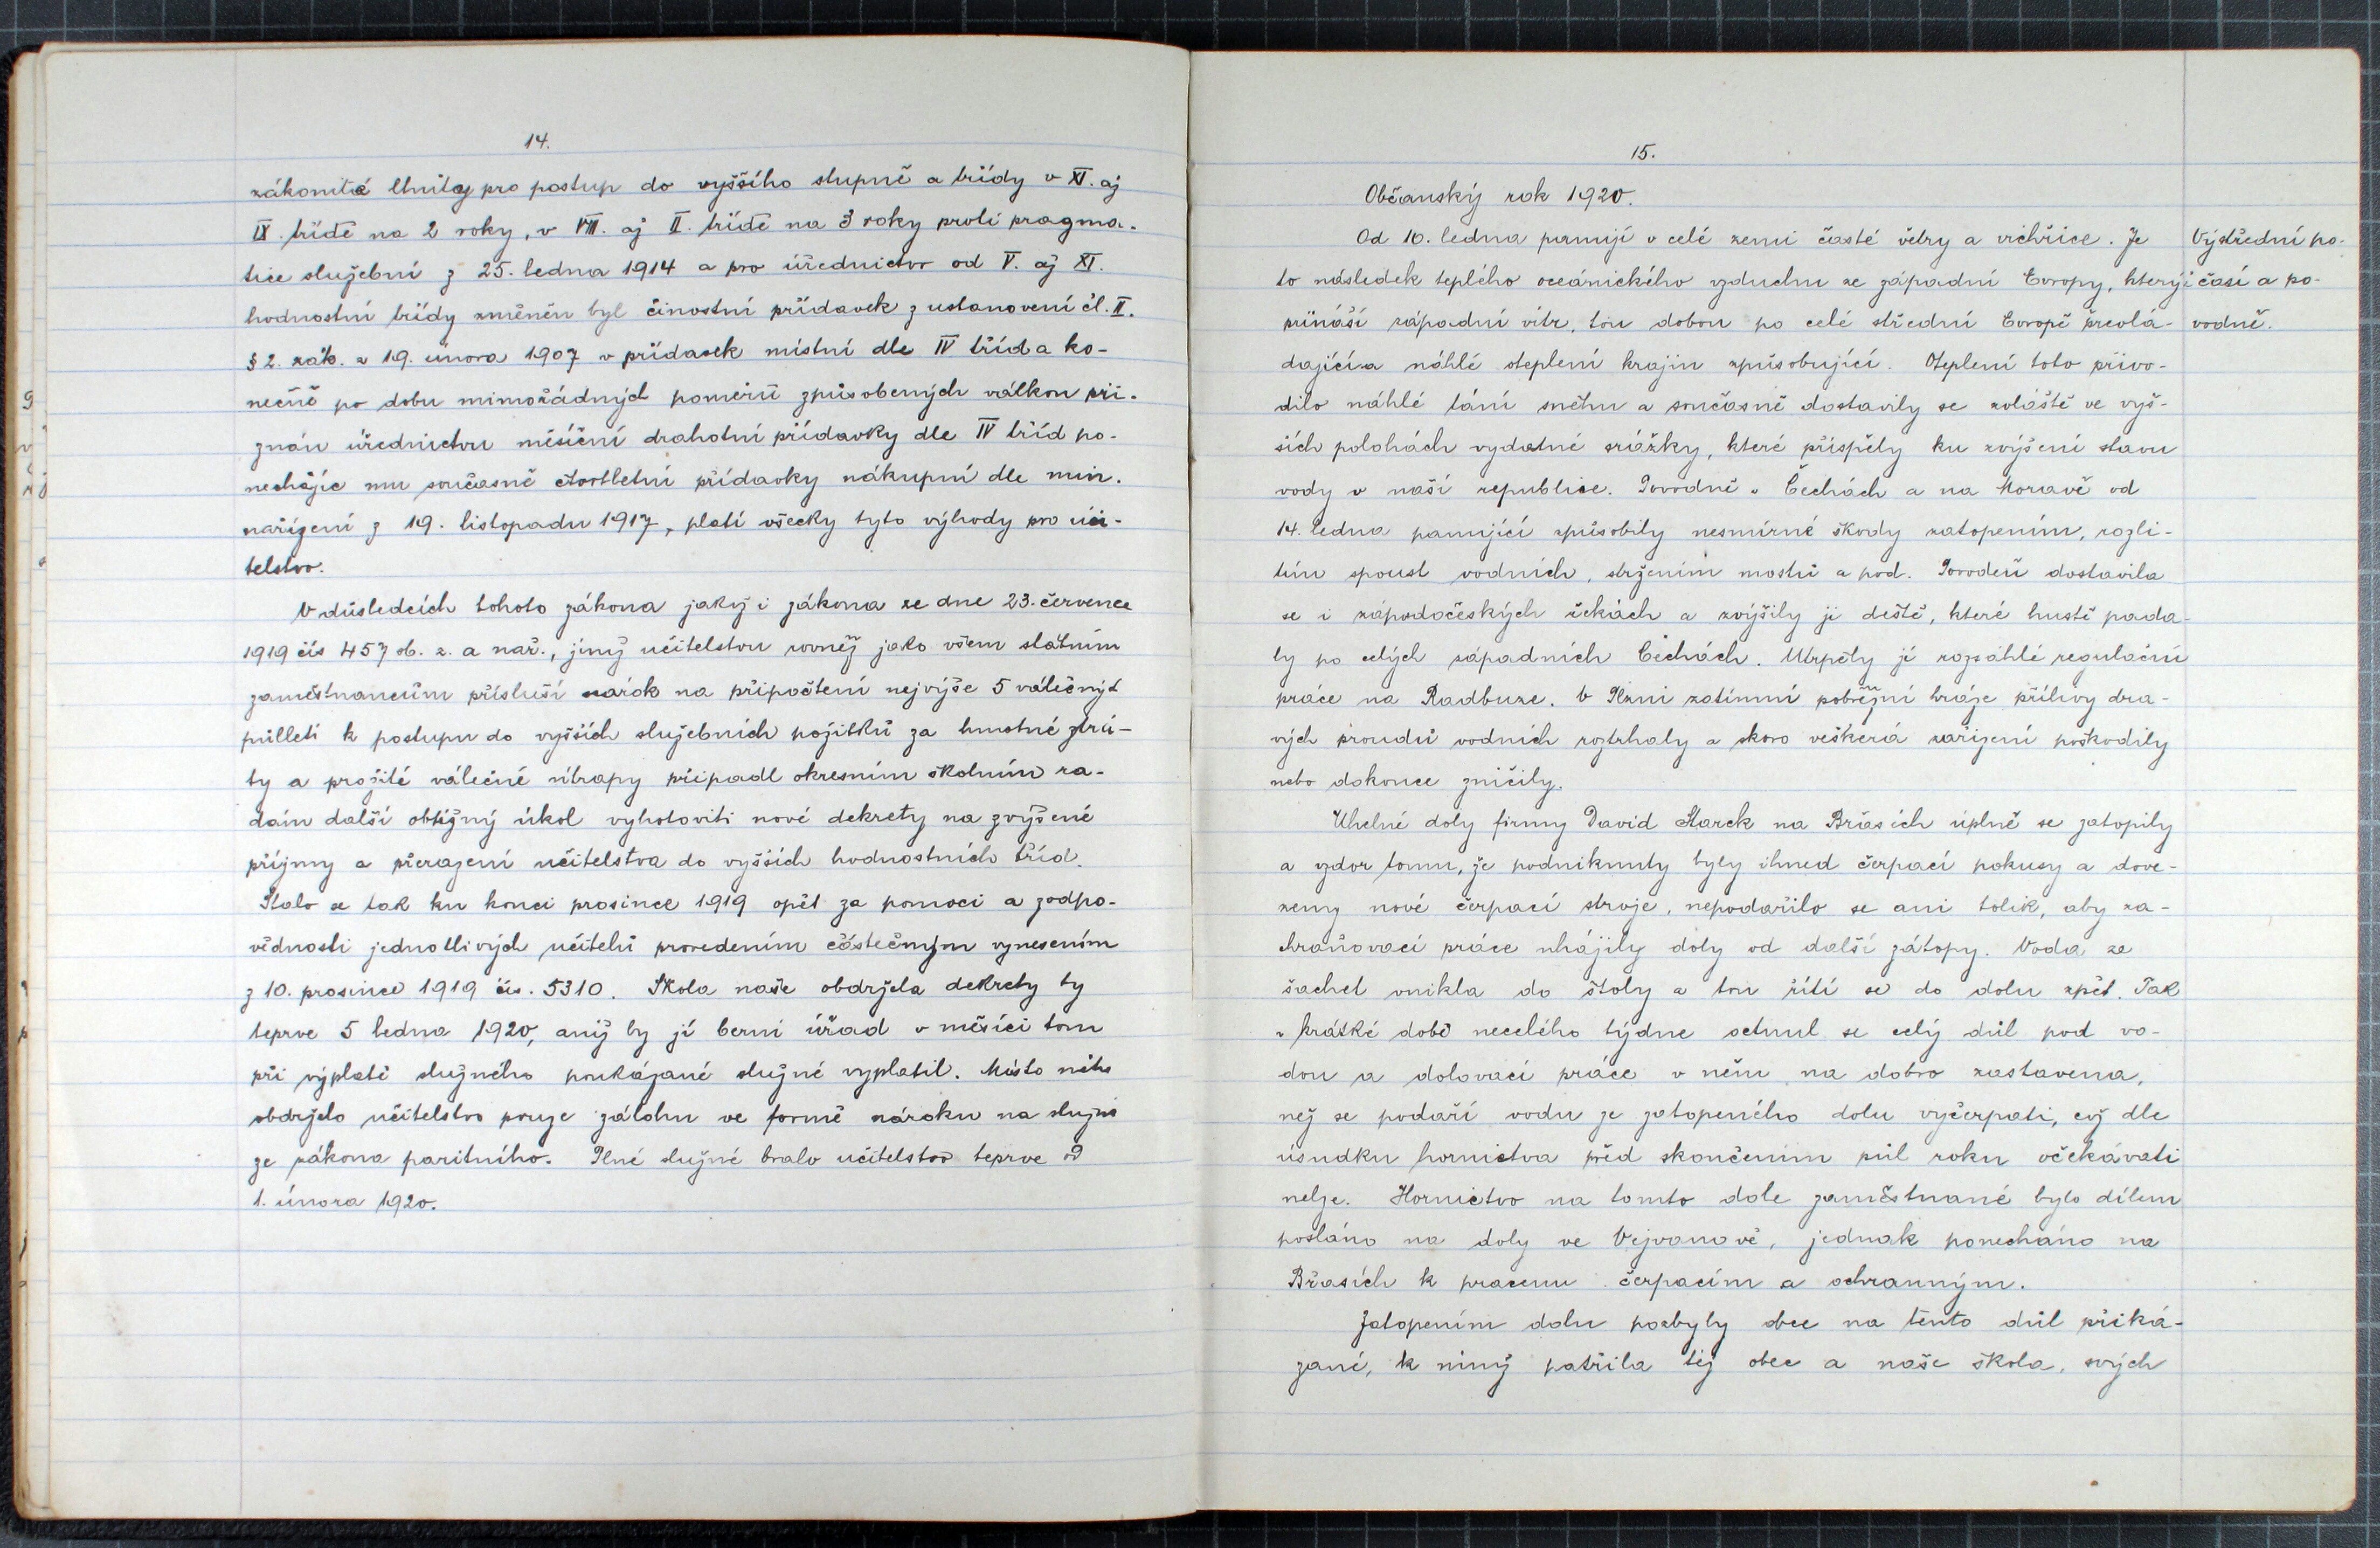 14.
zákonité lhůty pro postup do vyššího stupně a třídy v XI. až
IX. třídě na 2 roky, v VIII. až II. třídě na 3 roky proti pragma-
tice služební z 25. ledna 1914 a pro úřednictvo od V. až XI.
hodnostní třídy změněn byl činostní přídavek z ustanovení čl. II.
§ 2. zák. z 19. února 1907 v přídavek místní dle IV tříd a ko-
nečně po dobu mimořádných poměrů způsobených válkou při-
znán úřednictvu měsíční drahotní přídavky dle IV tříd po-
nechajíc mu současně čtvrtletní přídavky nákupní dle min.
nařízení z 19. listopadu 1917, platí všecky tyto výhody pro uči-
telstvo.
V důsledcích tohoto zákona jakž i zákona ze dne 23. července
1919 čís 457 sb. z. a nař., jímž učitelstvu rovněž jako všem státním
zaměstnancům přísluší nárok na připočtení nejvýše 5 válečných
půlletí k postupu do vyšších služebních požitků za hmotné ztrá-
ty a prožité válečné útrapy připadl okresním školním ra-
dám další obtížný úkol vyhotoviti nové dekrety na zvýšené
příjmy a přeražení učitelstva do vyšších hodnostních tříd.
Stalo se tak ku konci prosince 1919 opět za pomoci a zodpo-
vědnosti jednotlivých učitelů provedením částečným vynesením
z 10. prosince 1919 čís. 5310. Škola naše obdržela dekrety ty
teprve 5 ledna 1920, aniž by jí berní úřad v měsíci tom
při výplatě služného poukázané služné vyplatil. Místo něho
obdrželo učitelstvo pouze zálohu ve formě nároku na služné
ze zákona paritního. Plné služné bralo učitelstvo teprve od
1. února 1920.
15.
Občanský rok 1920.
Od 10. ledna panují v celé zemi časté větry a vichřice. Je
to následek teplého oceánického vzduchu ze západní Evropy, který
přináší západní vítr, tou dobou po celé střední Evropě převlá-
dající a náhlé oteplení krajin způsobující. Oteplení toto přivo-
dilo náhlé tání sněhu a současně dostavily se zvláště ve vyš-
ších polohách vydatné srážky, které přispěly ku zvýšení stavu
vody v naší republice. Povodně v Čechách a na Moravě od
14. ledna panující způsobily nesmírné škody zatopením, rozli-
tím spoust vodních, stržením mostů a pod. Povodeň dostavila
se i západočeských řekách a zvýšily ji deště, které hustě pada-
ly po celých západních Čechách. Utrpěly jí rozsáhlé regulační
práce na Radbuze. V Plzni zatímní pobřežní hráze přílivy dra-
vých proudů vodních roztrhaly a skoro veškerá zařízení poškodily
nebo dokonce zničily.
Uhelné doly firmy David Starck na Břasích úplně se zatopily
a vzdor tomu, že podniknuty byly ihned čerpací pokusy a dove-
zeny nové čerpací stroje, nepodařilo se ani tolik, aby za-
chraňovací práce uhájily doly od další zátopy. Voda ze
šachet vnikla do štoly a tou řítí se do dolu zpět. Tak
v krátké době necelého týdne octnul se celý důl pod vo-
dou a dolovací práce v něm na dobro zastavena,
než se podaří vodu ze zatopeného dolu vyčerpati, což dle
úsudku hornictva před skončením půl roku očekávati
nelze. Hornictvo na tomto dole zaměstnané bylo dílem
posláno na doly ve Vejvanově, jednak ponecháno na
Břasích k pracem čerpacím a ochranným.
Zatopením dolu pozbyly obce na tento důl přiká-
zané, k nimž patřila též obec a naše škola, svých
Výstřední po-
časí a po-
vodně.